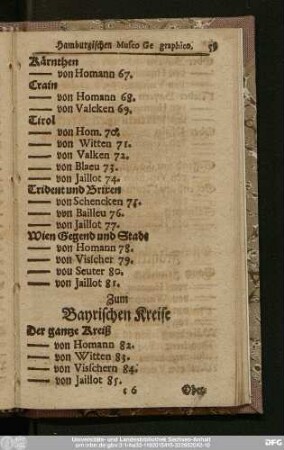 Hamburgischen Museo Geographico. 59
Kärnthen
— — von Homann 67.
Crain
— — von Homann 68.
— — von Valcken 69.
Tirol
— — von Hom. 70.
— — von Witten 71.
— — von Valken 72.
— — von Blaeu 73.
— — von Jaillot 74.
Trident und Brixen
— — von Schencken 75.
— — von Bailleu 76.
— — von Jaillot 77.
Wien Gegend und Stadt
— — von Homann 78.
— — von Visscher 79.
— — von Seuter 80.
— — von Jaillot 81.
Zum
Bayrischen Kreise
Der gantze Kreiß
— — von Homann 82.
— — von Witten 83.
— — von Visschern 84.
— — von Jaillot 85.
c 6 Ober-
Universitäts- und Landesbibliothek Sachsen-Anhalt
DFG